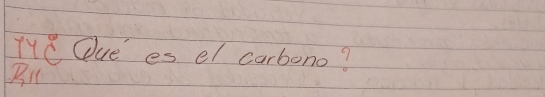 14¿ Qué es el carbono?
R//